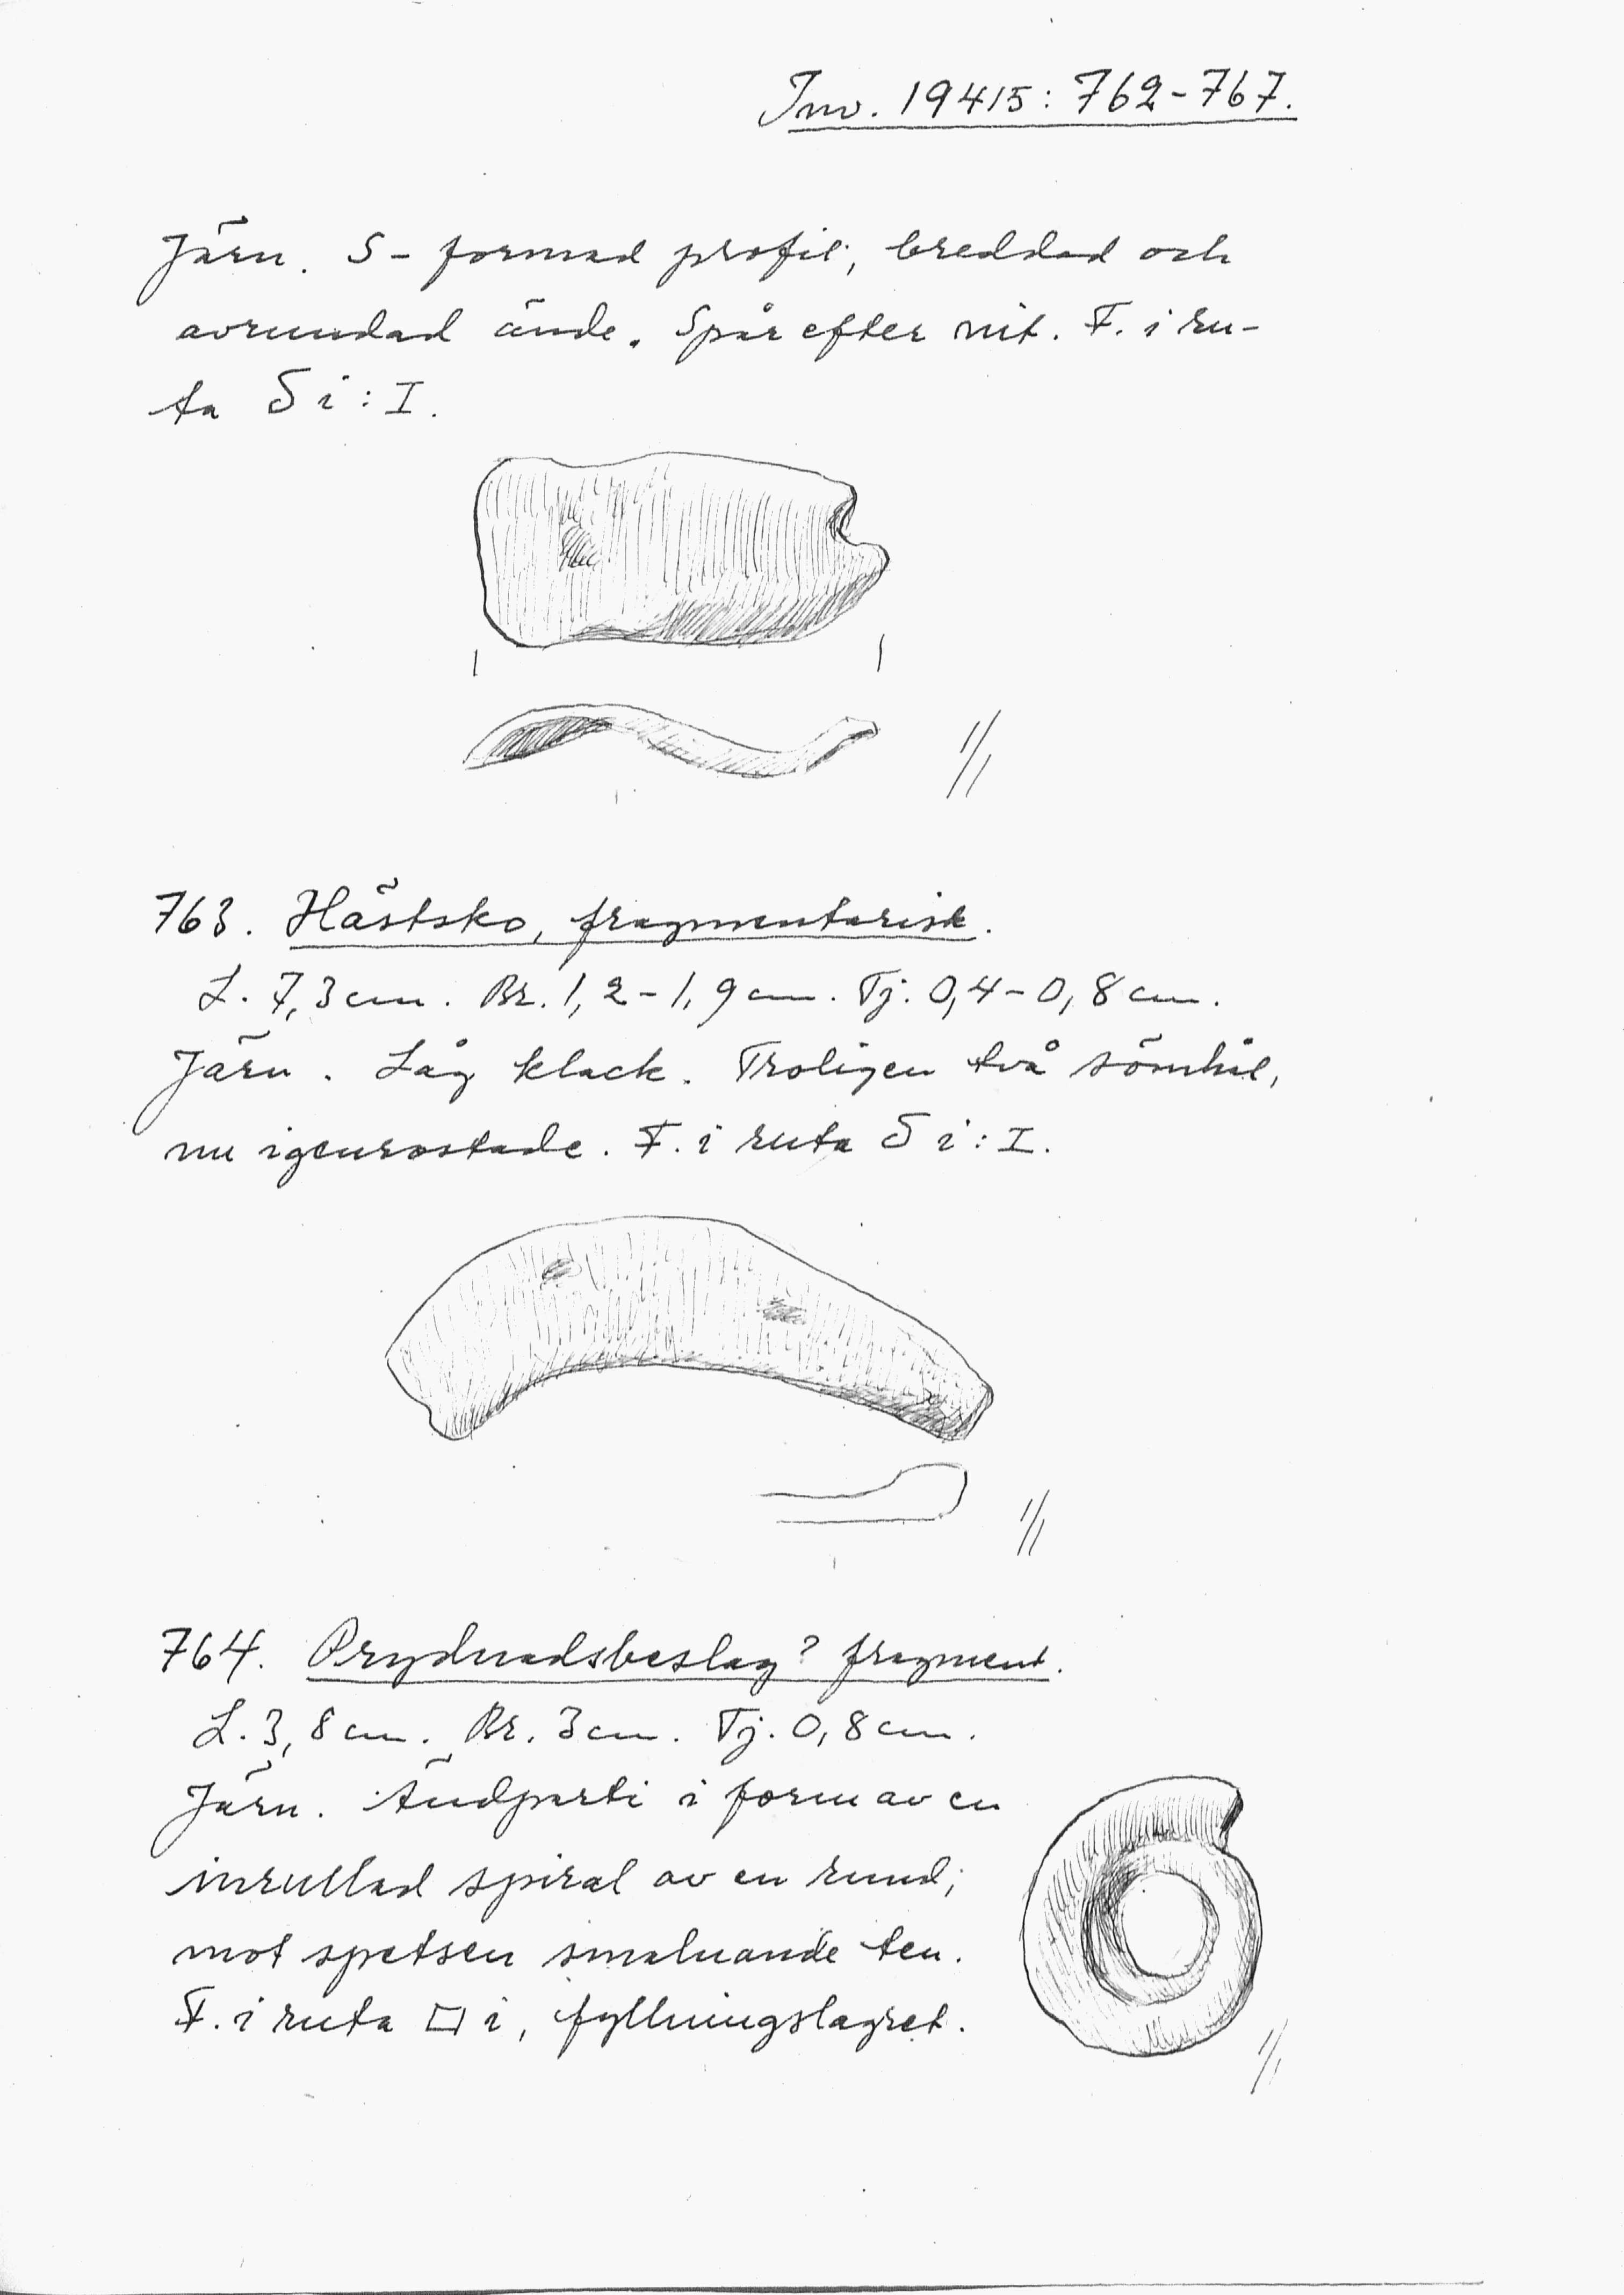 Inv. 19415: 762-767.
Järn. S-formad profil, breddad och
avrundad ände. Spår efter nit. F. i ru-
ta δ i : I.
1/1
763. Hästsko, fragmentarisk.
L. 7,3 cm. Br. 1,2-1,9 cm. Tj. 0,4-0,8 cm.
Järn. Låg klack. Troligen två sömhål,
nu igenrostade. F. i ruta δ i : I.
1/1
764. Prydnadsbeslag? fragment.
L. 3,8 cm. Br. 3 cm. Tj. 0,8 cm.
Järn. Ändparti i form av en
inrullad spiral av en rund,
mot spetsen smalnande ten.
F. i ruta □ i, fyllningslagret.
1/1